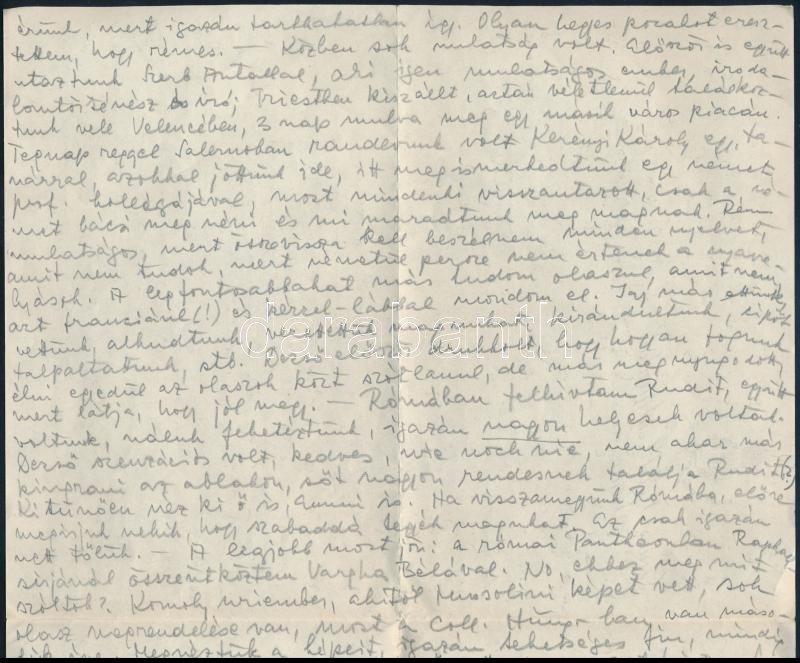 érünk, mert igazán tarthatatlan így. Olyan hegyes pocakot eresz-
tettem, hogy rémes. — Közben sok mulatság volt. Először is együtt
utaztunk Szerb Antallal, aki igen mulatságos ember, iroda-
lomtörténész és író; Triestben kiszállt, aztán véletlenül találkoz-
tunk vele Velencében, 3 nap mulva meg egy másik város piacán.
Tegnap reggel Salernoban randevunk volt Kerényi Károly egy. ta-
nárral, azokkal jöttünk ide, itt megismerkedtünk egy német
prof. kollégájával, most mindenki visszautazott, csak a né-
met bácsi meg néni és mi maradtunk meg magnak. Rém
mulatságos, mert összevissza kell beszélnem minden nyelvet,
amit nem tudok, mert németül persze nem értenek a nyava-
lyások. A legfontosabbakat más tudom olaszul, amit nem,
azt franciául (!) és kézzel-lábbal mondom el. Igy más ettünk,
vettünk, aludtunk, vezettettük magunkat, kirándultunk, cipőt
talpaltattunk, stb. Dezső először drukkolt, hogy hogyan fogunk
élni egyedül az olaszok közt szótlanul, de más megnyugodott,
mert látja, hogy jól megy. — Rómában felhívtam Rudit, együtt
voltunk, náluk feketéztünk, igazán nagyon helyesek voltak.
Dezső szenzációs volt, kedves, wie noch nie, nem akar más
kiugrani az ablakon, sőt nagyon rendesnek találja Rudit (?)
Kitünően néz ki ő is, Emmi is. Ha visszamegyünk Rómába, előre
megirjuk nekik, hogy szabaddá tegyék magukat. Ez csak igazán
nett tőlük. — A legjobb most jön: a római Pantheonban Raphael
sírjánál összeütköztem Vargha Bélával. No, ehhez meg mit
szóltok? Komoly úriember, akitől Mussolini képet vett, sok
olasz megrendelése van, most a Coll. Hungar.ban van máso-
dik éve. Megnéztük a képeit, igazán tehetséges fiu, mindig